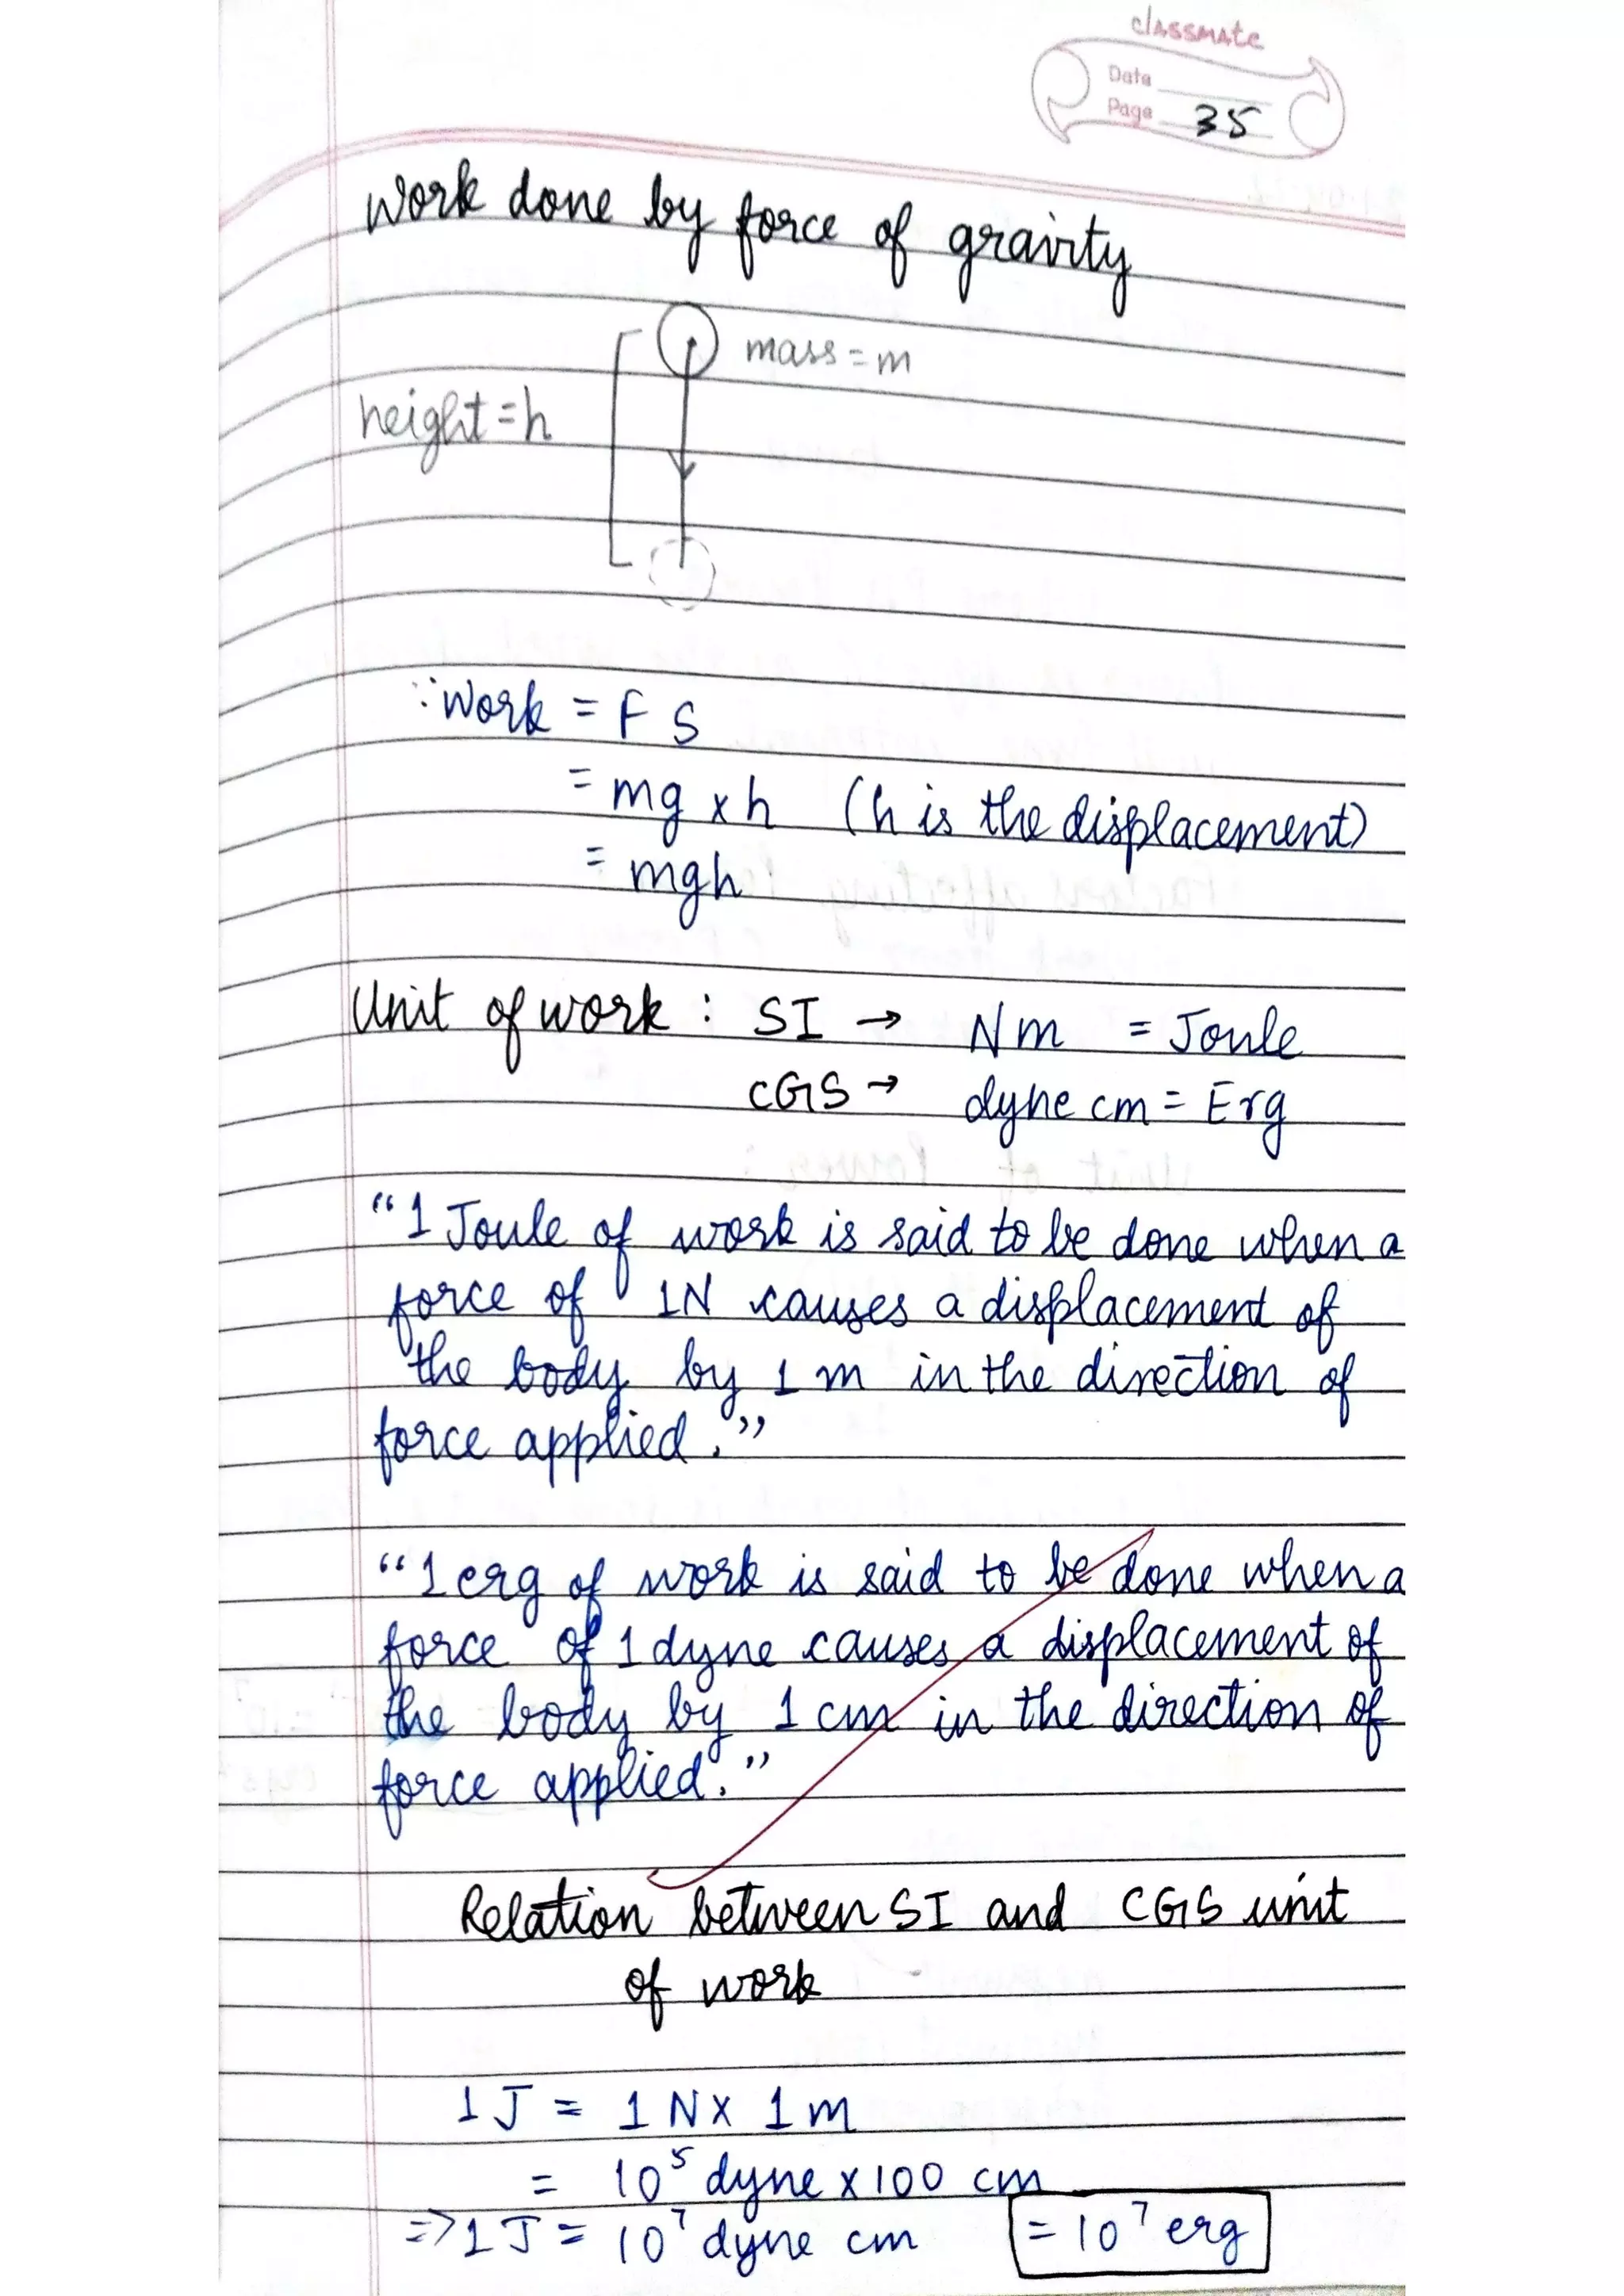 classmate
Date
Page 35
Work done by force of gravity
mass = m
height = h
∵ Work = F S
= mg × h (h is the displacement)
= mgh
Unit of work : SI → Nm = Joule
CGS → dyne cm = Erg
“1 Joule of work is said to be done when a
force of 1N causes a displacement of
the body by 1 m in the direction of
force applied.”
“1 erg of work is said to be done when a
force of 1 dyne causes a displacement of
the body by 1 cm in the direction of
force applied.”
Relation between SI and CGS unit
of work
1 J = 1 N × 1 m
= 10⁵ dyne × 100 cm
⇒ 1 J = 10⁷ dyne cm = 10⁷ erg